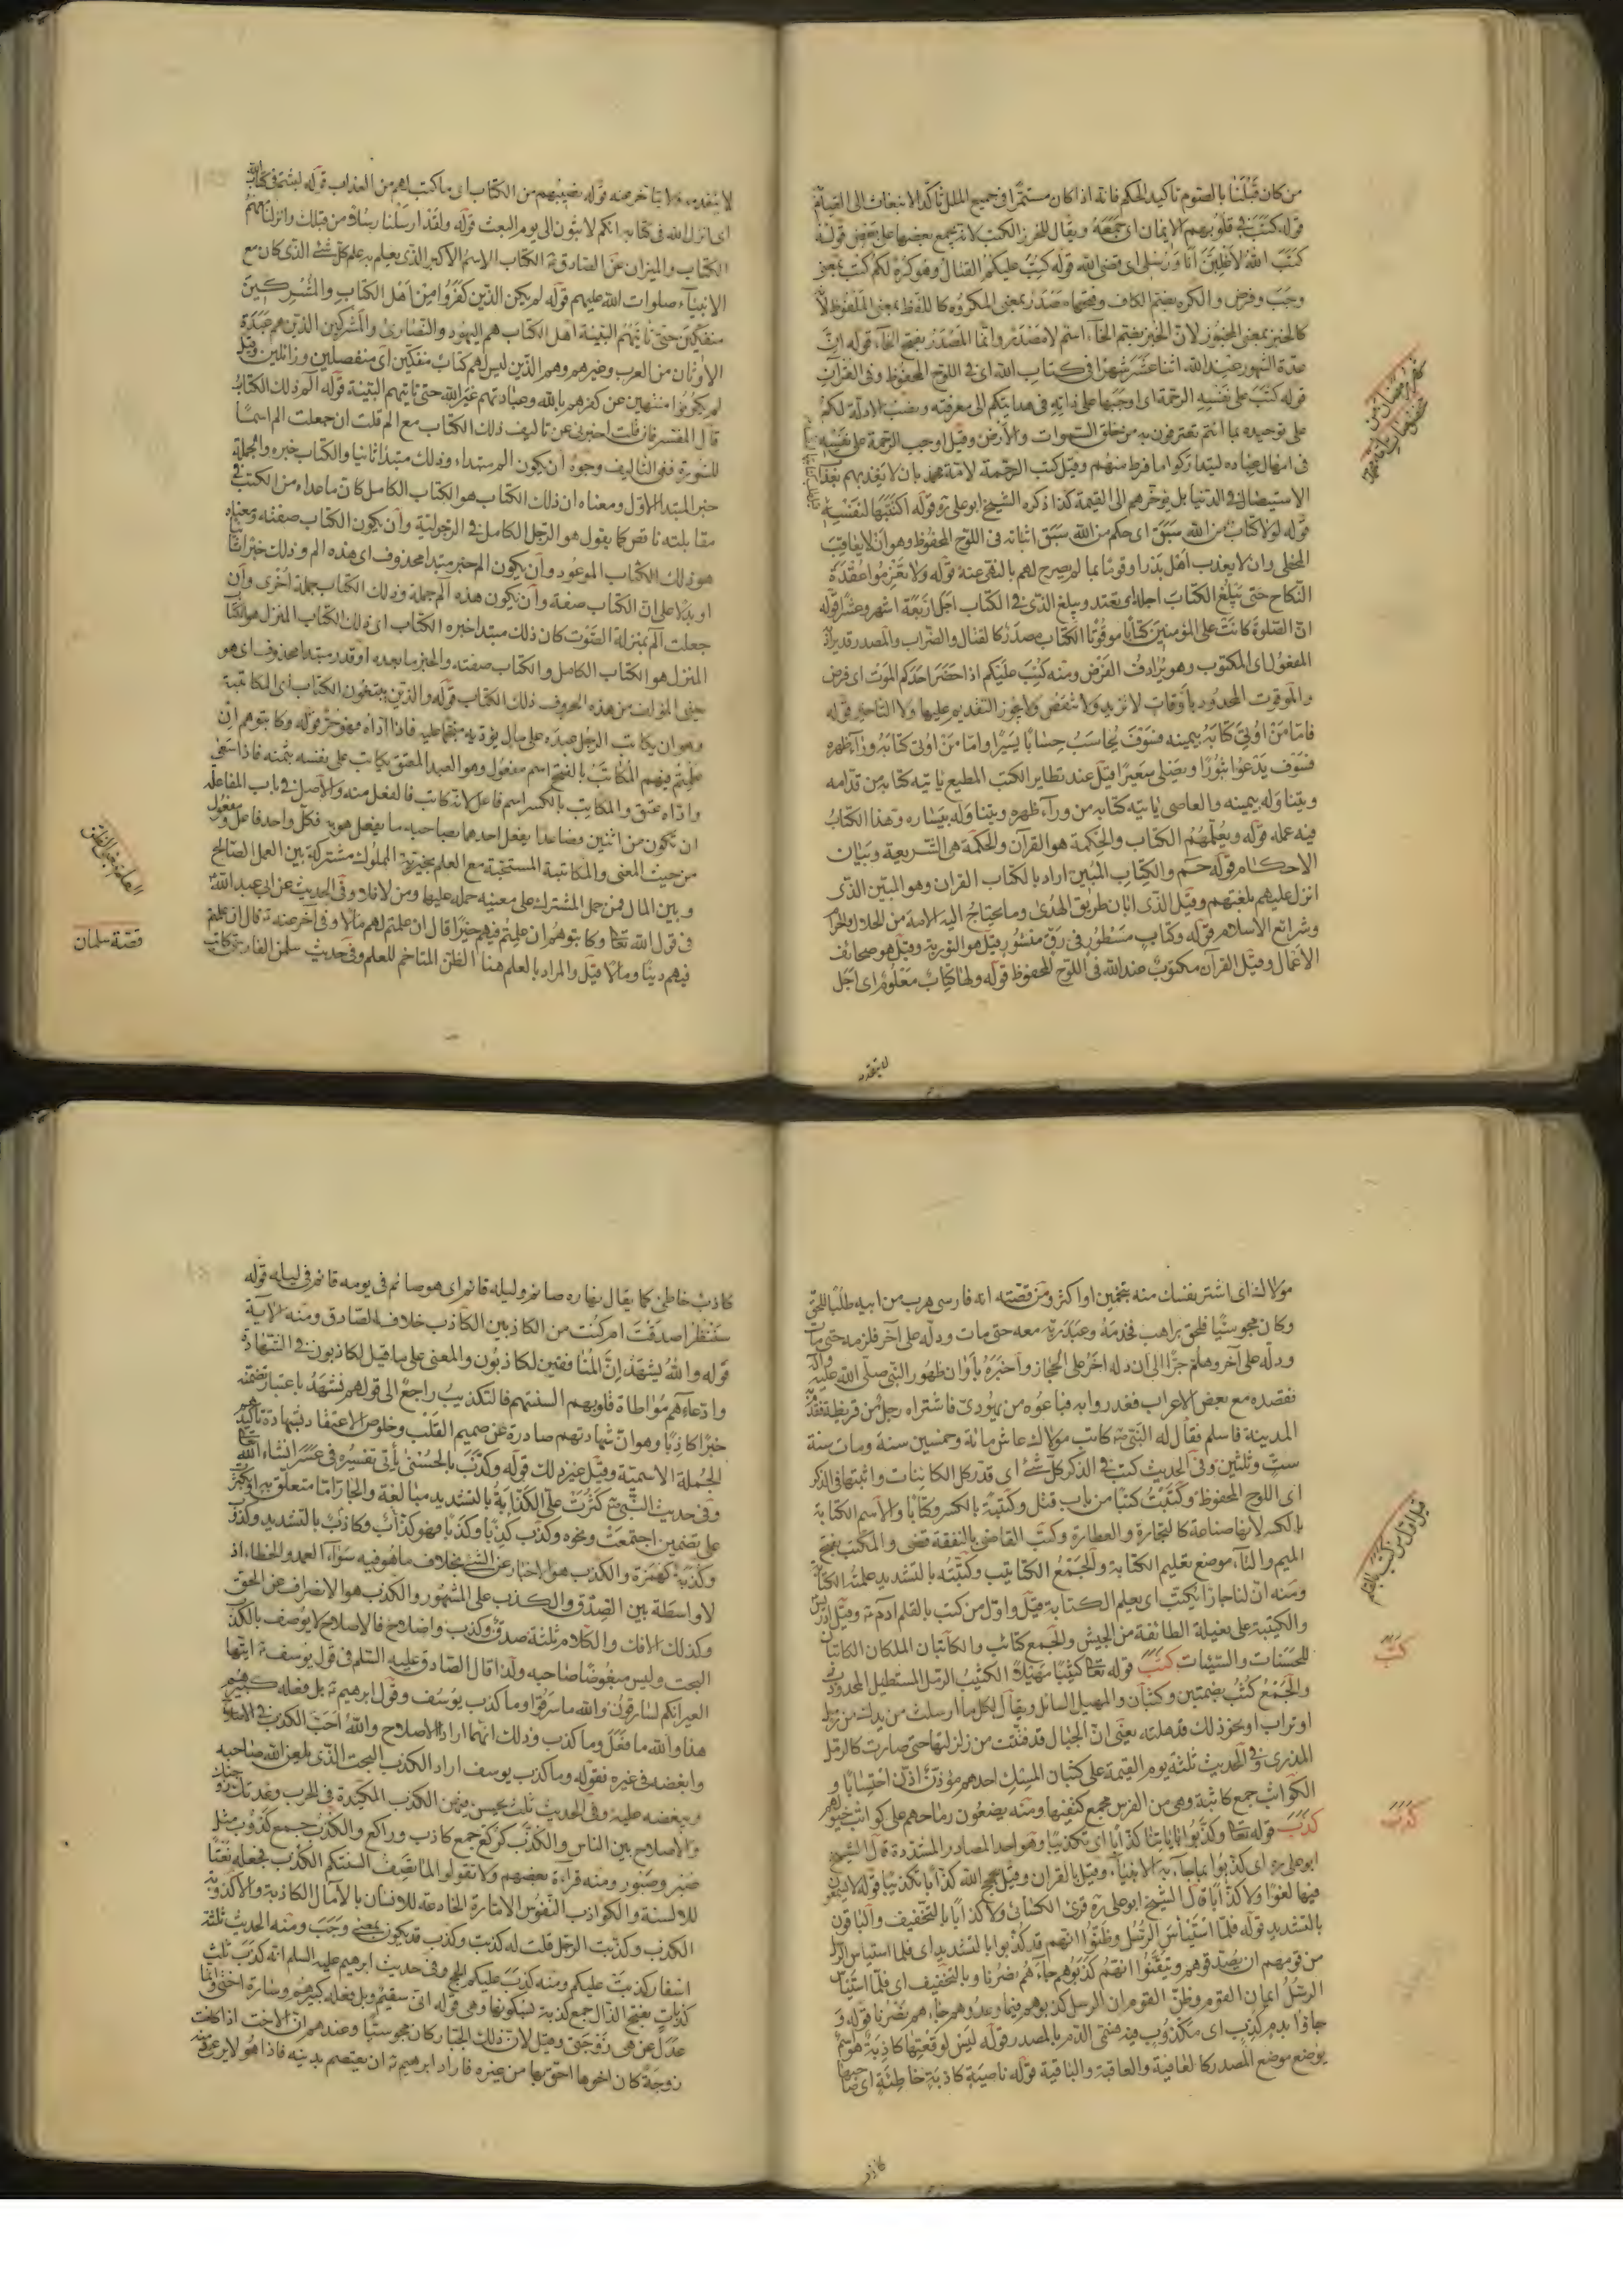 من كان قبلنا بالصوم تاكيد للحكم فانه اذا كان مستمرا في جميع الملل تاكد الانبعاث الى القيام
قوله كتب في قلوبهم الايمان اى جمعه ويقال للخرز الكتب لانه يجمع بعضها على بعض قوله
كتب الله لاغلبن انا ورسلى اى قضى الله قوله كتب عليكم القتال وهو كره لكم كتب بمعنى
وجب وفرض والكره بضم الكاف وفتحها مصدر بمعنى المكروه كاللفظ بمعنى الملفوظ لا
كالخبز بمعنى المخبوز لان الخبز بضم الخاء اسم لا مصدر وانما المصدر بفتح الخاء قوله ان
عدة الشهور عند الله اثنا عشر شهرا في كتاب الله اى في اللوح المحفوظ وفي القرآن
قوله كتب على نفسه الرحمة اى اوجبها على ذاته في هدايتكم الى معرفته ونصب الادلة لكم
على توحيده بما انتم تعترفون به من خلق السموات والارض وقيل اوجب الرحمة على نفسه
في امهال عباده ليتداركوا ما فرط منهم وقيل كتب الرحمة لامة محمد بان لا يعذبهم بعذاب
الاستيصال في الدنيا بل يؤخرهم الى القيمة كذا ذكره الشيخ ابو على ره قوله اكتتبها لنفسه
قوله لولا كتاب من الله سبق اى حكم من الله سبق اثباته في اللوح المحفوظ وهو ان لا يعاقب
المخطى وان لا يعذب اهل بدر او قوما بما لم يصرح لهم بالنهى عنه قوله ولا تعزموا عقدة
النكاح حتى يبلغ الكتاب اجله اى يعتد ويبلغ الذى في الكتاب اجل اربعة اشهر وعشرا قوله
ان الصلوة كانت على المؤمنين كتابا موقوتا الكتاب مصدر كالقتال والضراب والمصدر قد يراد به
المفعول اى المكتوب وهو يرادف الفرض ومنه كتب عليكم اذا حضر احدكم الموت اى فرض
والموقوت المحدود باوقات لا تزيد ولا تنقص ولا يجوز التقديم عليها ولا التاخير قوله
فاما من اوتى كتابه بيمينه فسوف يحاسب حسابا يسيرا واما من اوتى كتابه وراء ظهره
فسوف يدعوا ثبورا ويصلى سعيرا قيل عند تطاير الكتب المطيع ياتيه كتابه من قدامه
ويتناوله بيمينه والعاصى ياتيه كتابه من وراء ظهره ويتناوله بيساره وهذا الكتاب
فيه عمله قوله ويعلمهم الكتاب والحكمة هو القرآن والحكمة هى الشريعة وبيان
الاحكام قوله حم والكتاب المبين اراد بالكتاب القرآن وهو المبين الذى
انزل عليهم بلغتهم وقيل الذى ابان طريق الهدى وما يحتاج اليه الامة من الحلال والحرام
وشرائع الاسلام قوله وكتاب مسطور في رق منشور قيل هو التورية وقيل هو صحائف
الاعمال وقيل القرآن مكتوب عند الله في اللوح المحفوظ قوله ولها كتاب معلوم اى اجل
لا يتقدم
لا يتقدمه ولا يتاخر عنه قوله نصيبهم من الكتاب اى ما كتب لهم من العذاب قوله لبثتم في كتاب الله
اى انزل الله في كتابه انكم لابثون الى يوم البعث قوله ولقد ارسلنا رسلا من قبلك وانزلنا معهم
الكتاب والميزان عن الصادق ع الكتاب الاسم الاكبر الذى يعلم به علم كل شئ الذى كان مع
الانبياء صلوات الله عليهم قوله لم يكن الذين كفروا من اهل الكتاب والمشركين
منفكين حتى تاتيهم البينة اهل الكتاب هم اليهود والنصارى والمشركين الذين هم عبدة
الاوثان من العرب وغيرهم وهم الذين ليس لهم كتاب منفكين اى منفصلين وزائلين وقيل
لم يكونوا منتهين عن كفرهم بالله وعبادتهم غير الله حتى تاتيهم البينة قوله الم ذلك الكتاب
قال المفسر فان قلت اخبرنى عن تاليف ذلك الكتاب مع الم قلت ان جعلت الم اسما
للسورة ففي التاليف وجوه ان يكون الم مبتداء وذلك مبتدا ثانيا والكتاب خبره والجملة
خبر المبتدا الاول ومعناه ان ذلك الكتاب هو الكتاب الكامل كان ما عداه من الكتب في
مقابلته ناقص كما يقول هو الرجل الكامل في الرجولية وان يكون الكتاب صفته ومعناه
هو ذلك الكتاب الموعود وان يكون الم خبر مبتدا محذوف اى هذه الم وذلك خبرا ثانيا
او بدلا على ان الكتاب صفة وان يكون هذه الم جملة وذلك الكتاب جملة اخرى وان
جعلت الم بمنزلة الصوت كان ذلك مبتدا خبره الكتاب اى ذلك الكتاب المنزل هو الكتاب
المنزل هو الكتاب الكامل والكتاب صفته والخبر ما بعده او قدر مبتدا محذوف اى هو
يعنى المؤلف من هذه الحروف ذلك الكتاب قوله والذين يبتغون الكتاب اى المكاتبة
وهو ان يكاتب الرجل عبده على مال يؤديه منجما عليه فاذا اداه فهو حر قوله وكاتبوهم ان
علمتم فيهم المكاتب بالفتح اسم مفعول وهو العبد المعتق يكاتب على نفسه بثمنه فاذا سعى
واداه عتق والمكاتب بالكسر اسم فاعل لانه كاتب فالفعل منه والاصل في باب المفاعلة
ان يكون من اثنين فصاعدا يفعل احدهما بصاحبه ما يفعل هو به فكل واحد فاعل ومفعول
من حيث المعنى والمكاتبة المستحبة مع العلم بخيرية المملوك مشتركة بين العمل الصالح
وبين المال فمن حمل المشترك على معنييه حمله عليها ومن لا فلا وفي الحديث عن ابى عبد الله ع
في قول الله تعا وكاتبوهم ان علمتم فيهم خيرا قال ان علمتم لهم مالا وفي آخر عنه ع قال ان علمتم
فيهم دينا ومالا قيل والمراد بالعلم هنا الظن المتاخم للعلم وفي حديث سلمن الفارسى كاتب
قصة سلمان
مولاك اى اشتر نفسك منه بنجمين او اكثر ومن قصته انه فارسى هرب من ابيه طلبا للحق
وكان مجوسيا فلحق براهب فخدمه وعبد ربه معه حتى مات ودله على آخر فلزمه حتى مات
ودله على آخر وهلم جرا الى ان دله اخر على الحجاز واخبره باوان ظهور النبى صلى الله عليه واله
فقصده مع بعض الاعراب فغدروا به فباعوه من يهودى فاشتراه رجل من قريظة فقدم
المدينة فاسلم فقال له النبى ص كاتب مولاك عاش مائة وخمسين سنة ومات سنة
ست وثلثين وفي الحديث كتب في الذكر كل شئ اى قدر كل الكائنات واثبتها في الذكر
اى اللوح المحفوظ وكتبت كتبا من باب قتل وكتبة بالكسر وكتابا والاسم الكتابة
بالكسر لانها صناعة كالتجارة والعطارة وكتب القاضى بالنفقة قضى والمكتب بفتح
الميم والتاء موضع تعليم الكتابة والجمع الكتاتيب وكتبته بالتشديد علمته الكتابة
ومنه ان لنا جارا يكتب اى يعلم الكتابة قيل واول من كتب بالقلم آدم ع وقيل ادريس
والكتيبة على فعيلة الطائفة من الجيش والجمع كتائب والكاتبان الملكان الكاتبان
للحسنات والسيئات كثب قوله تعا كثيبا مهيلا الكثيب الرمل المستطيل المحدودب
والجمع كثب بضمتين وكثبان والمهيل السائل ويقال لكل ما ارسلت من يدك من رمل
او تراب او نحو ذلك قد هلته يعنى ان الجبال قد فتتت من زلزلتها حتى صارت كالرمل
المذرى وفي الحديث ثلثة يوم القيمة على كثبان المسك احدهم مؤذن اذن احتسابا و
الكواثب جمع كاثبة وهى من الفرس مجمع كتفيها ومنه يضعون رماحهم على كواثب خيولهم
كذب قوله تعا وكذبوا باياتنا كذابا اى تكذيبا وهو احد المصادر المشددة قال الشيخ
ابو على ره اى كذبوا بما جاء به الانبياء وقيل بالقرآن وقيل بحجج الله كذابا تكذيبا قوله لا يسمعون
فيها لغوا ولا كذابا قال الشيخ ابو على ره قرئ الكسائى ولا كذابا بالتخفيف والباقون
بالتشديد قوله فلما استيأس الرسل وظنوا انهم قد كذبوا بالتشديد اى فلما استيأس الرسل
من قومهم ان يصدقوهم وتيقنوا انهم كذبوهم جاءهم نصرنا وبالتخفيف اى فلما استيأس
الرسل ايمان القوم وظن القوم ان الرسل كذبوهم فيما وعدوهم جاءهم نصرنا قوله و
جاؤا بدم كذب اى مكذوب فيه فسمى الدم بالمصدر قوله ليس لوقعتها كاذبة هو اسم
يوضع موضع المصدر كالعافية والعاقبة والباقية قوله ناصية كاذبة خاطئة اى صاحبها
كثب
كذب
كاذب
كاذب خاطئ كما يقال نهاره صائم وليله قائم اى هو صائم في يومه قائم في ليله قوله
سننظر اصدقت ام كنت من الكاذبين الكاذب خلاف الصادق ومنه الاية
قوله والله يشهد ان المنافقين لكاذبون والمعنى على ما قيل لكاذبون في الشهادة
وادعاءهم مواطاة قلوبهم السنتهم فالتكذيب راجع الى قولهم نشهد باعتبار تضمنه
خبرا كاذبا وهو ان شهادتهم صادرة عن صميم القلب وخلوص الاعتقاد بشهادة تاكيد
الجملة الاسمية وقيل غير ذلك قوله وكذب بالحسنى يأتى تفسيره في عسر انشاء الله
وفي حديث النبى ص كثرت على الكذابة بالتشديد مبالغة والجار اما متعلق به او بكثرت
على تضمين اجتمعت ونحوه وكذب كذبا وكذبا فهو كذاب وكاذب بالتشديد وكذوب
وكذبة كهمزة والكذب هو الاخبار عن الشئ بخلاف ما هو فيه سواء العمد والخطاء اذ
لا واسطة بين الصدق والكذب على المشهور والكذب هو الانصراف عن الحق
وكذلك الافك والكلام ثلثة صدق وكذب واصلاح فالاصلاح لا يوصف بالكذب
البحت وليس مبغوضا صاحبه ولذا قال الصادق عليه السلم في قول يوسف ع ايتها
العير انكم لسارقون والله ما سرقوا وما كذب يوسف وقول ابرهيم ع بل فعله كبيرهم
هذا والله ما فعل وما كذب وذلك انهما ارادا الاصلاح والله احب الكذب في الاصلاح
وابغضه في غيره فقوله وما كذب يوسف اراد الكذب البحت الذى يبغض الله صاحبه
ويبغضه عليه وفي الحديث ثلث يحسن فيهن الكذب المكيدة في الحرب وعدتك زوجتك
والاصلاح بين الناس والكذب كركع جمع كاذب وراكع والكذب جمع كذوب مثل
صبر وصبور ومنه قراءة بعضهم ولا تقولوا لما تصف السنتكم الكذب فجعله نعتا
للالسنة والكواذب النفوس الامارة الخادعة للانسان بالآمال الكاذبة والاكذوبة
الكذب وكذبت الرجل قلت له كذبت وكذب قد يكون بمعنى وجب ومنه الحديث ثلثة
اسفار كذبت عليكم ومنه كذب عليكم الحج وفي حديث ابرهيم عليه السلم انه كذب ثلث
كذبات بفتح الذال جمع كذبة بسكونها وهى قوله انى سقيم وبل فعله كبيرهم وسارة اختى وانما
عدل عن هى زوجتى وقيل لان ذلك الجبار كان مجوسيا وعندهم ان الاخت اذا كانت
زوجة كان اخوها احق بها من غيره فاراد ابرهيم ع ان يعتصم بدينه فاذا هو لا يرعى دينه